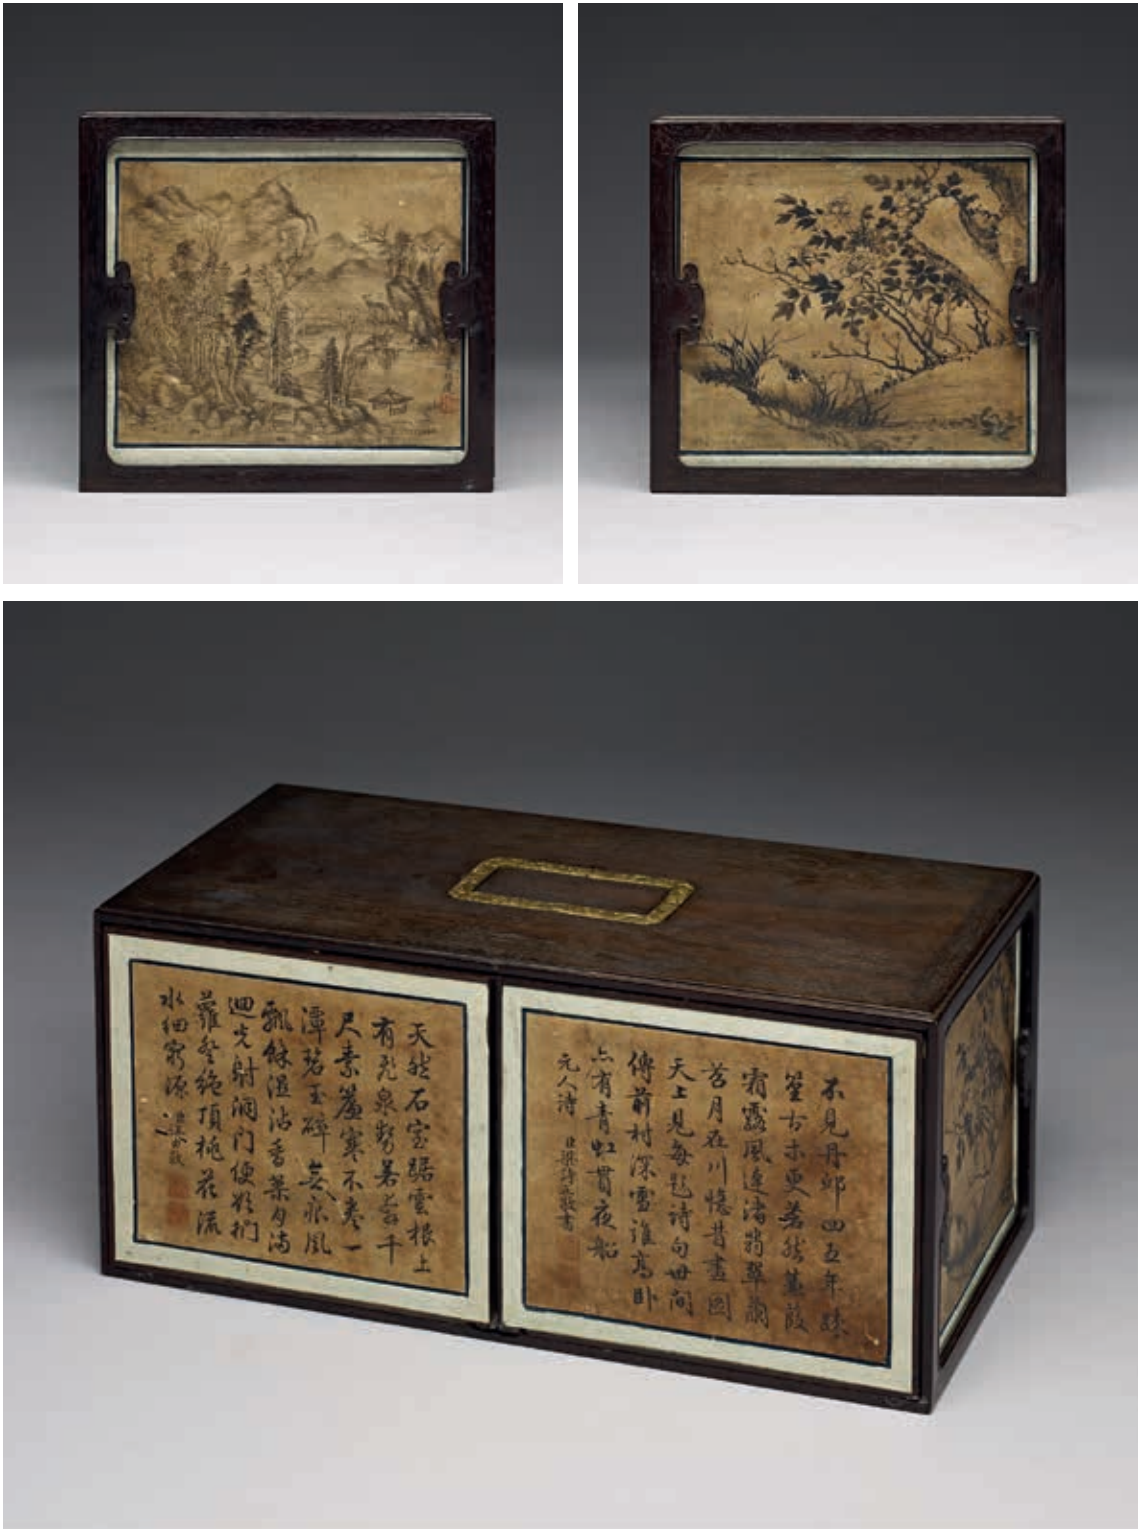 不見丹邱四五年綠
筠古木更蒼然蒹葭
霜露風連渚翡翠蘭
苕月在川憶昔畫圖
天上見每題詩句世間
傳前村深雪誰高臥
亦有青虹貫夜船
元人詩 臣梁詩正敬書
天然石室踞雲根上
有飛泉勢若奔千
尺素簾寒不卷一
潭碧玉碎無痕風
飄餘濕沾香葉月滿
迴光射洞門便欲捫
蘿登絕頂桃花流
水細窮源